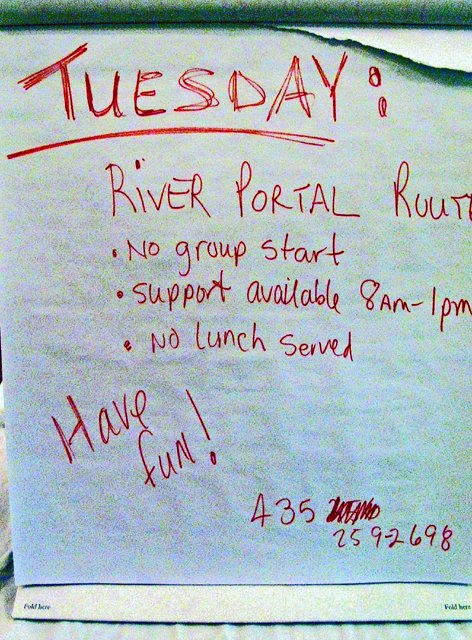 TUESDAY:
RIVER PORTAL ROUTE
• No group start
• support available 8AM-1pm
• No lunch served
Have
fun!
435
259-2698
Fold here
Fold here